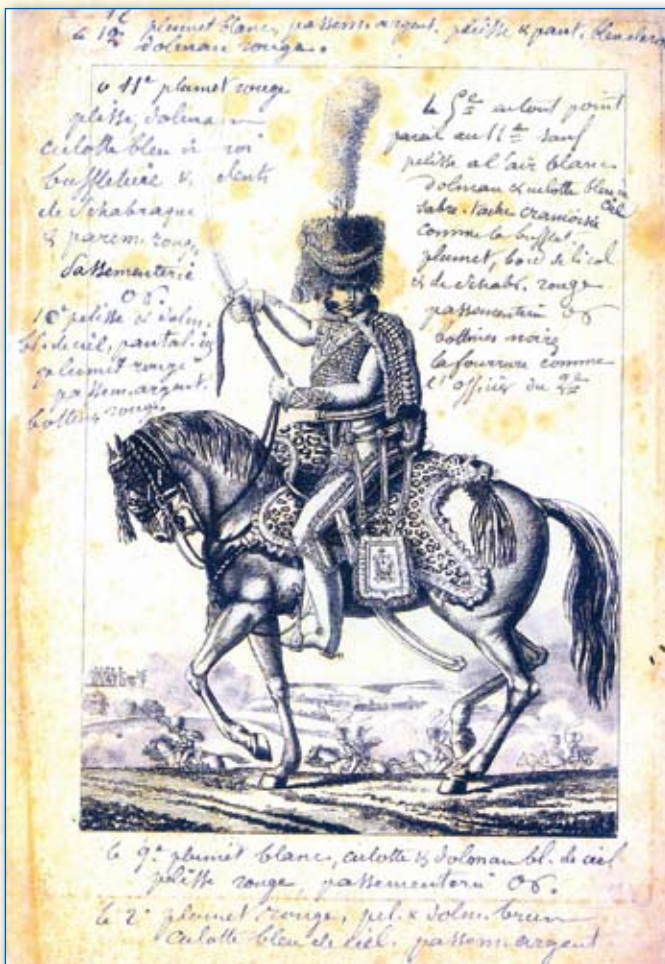 le 12e plumet blanc, passem. argent. pelisse & pant. bleu
dolman rouge.
11e plumet rouge
pelisse, dolman
culotte bleu
buffleterie & dents
de Schabraque
& parem. rouge,
passementerie
or.
10e pelisse & dolm.
bl. de ciel, pantal.
plumet rouge
passem. argent.
bottines rouges.
le 5e en tout point
pareil au 11e sauf
pelisse blanc
dolman & culotte bleu
ciel
sabre-tache cramoisie
comme le bufflet.
plumet, bord de
& de Schabr. rouge
passementerie or
bottines noires
la fourrure comme
l'officier du 9e
le 9e plumet blanc, culotte & dolman bl. de ciel
pelisse rouge, passementerie or.
le 2e plumet rouge, pel. & dolm. brun
culotte bleu de ciel. passem. argent